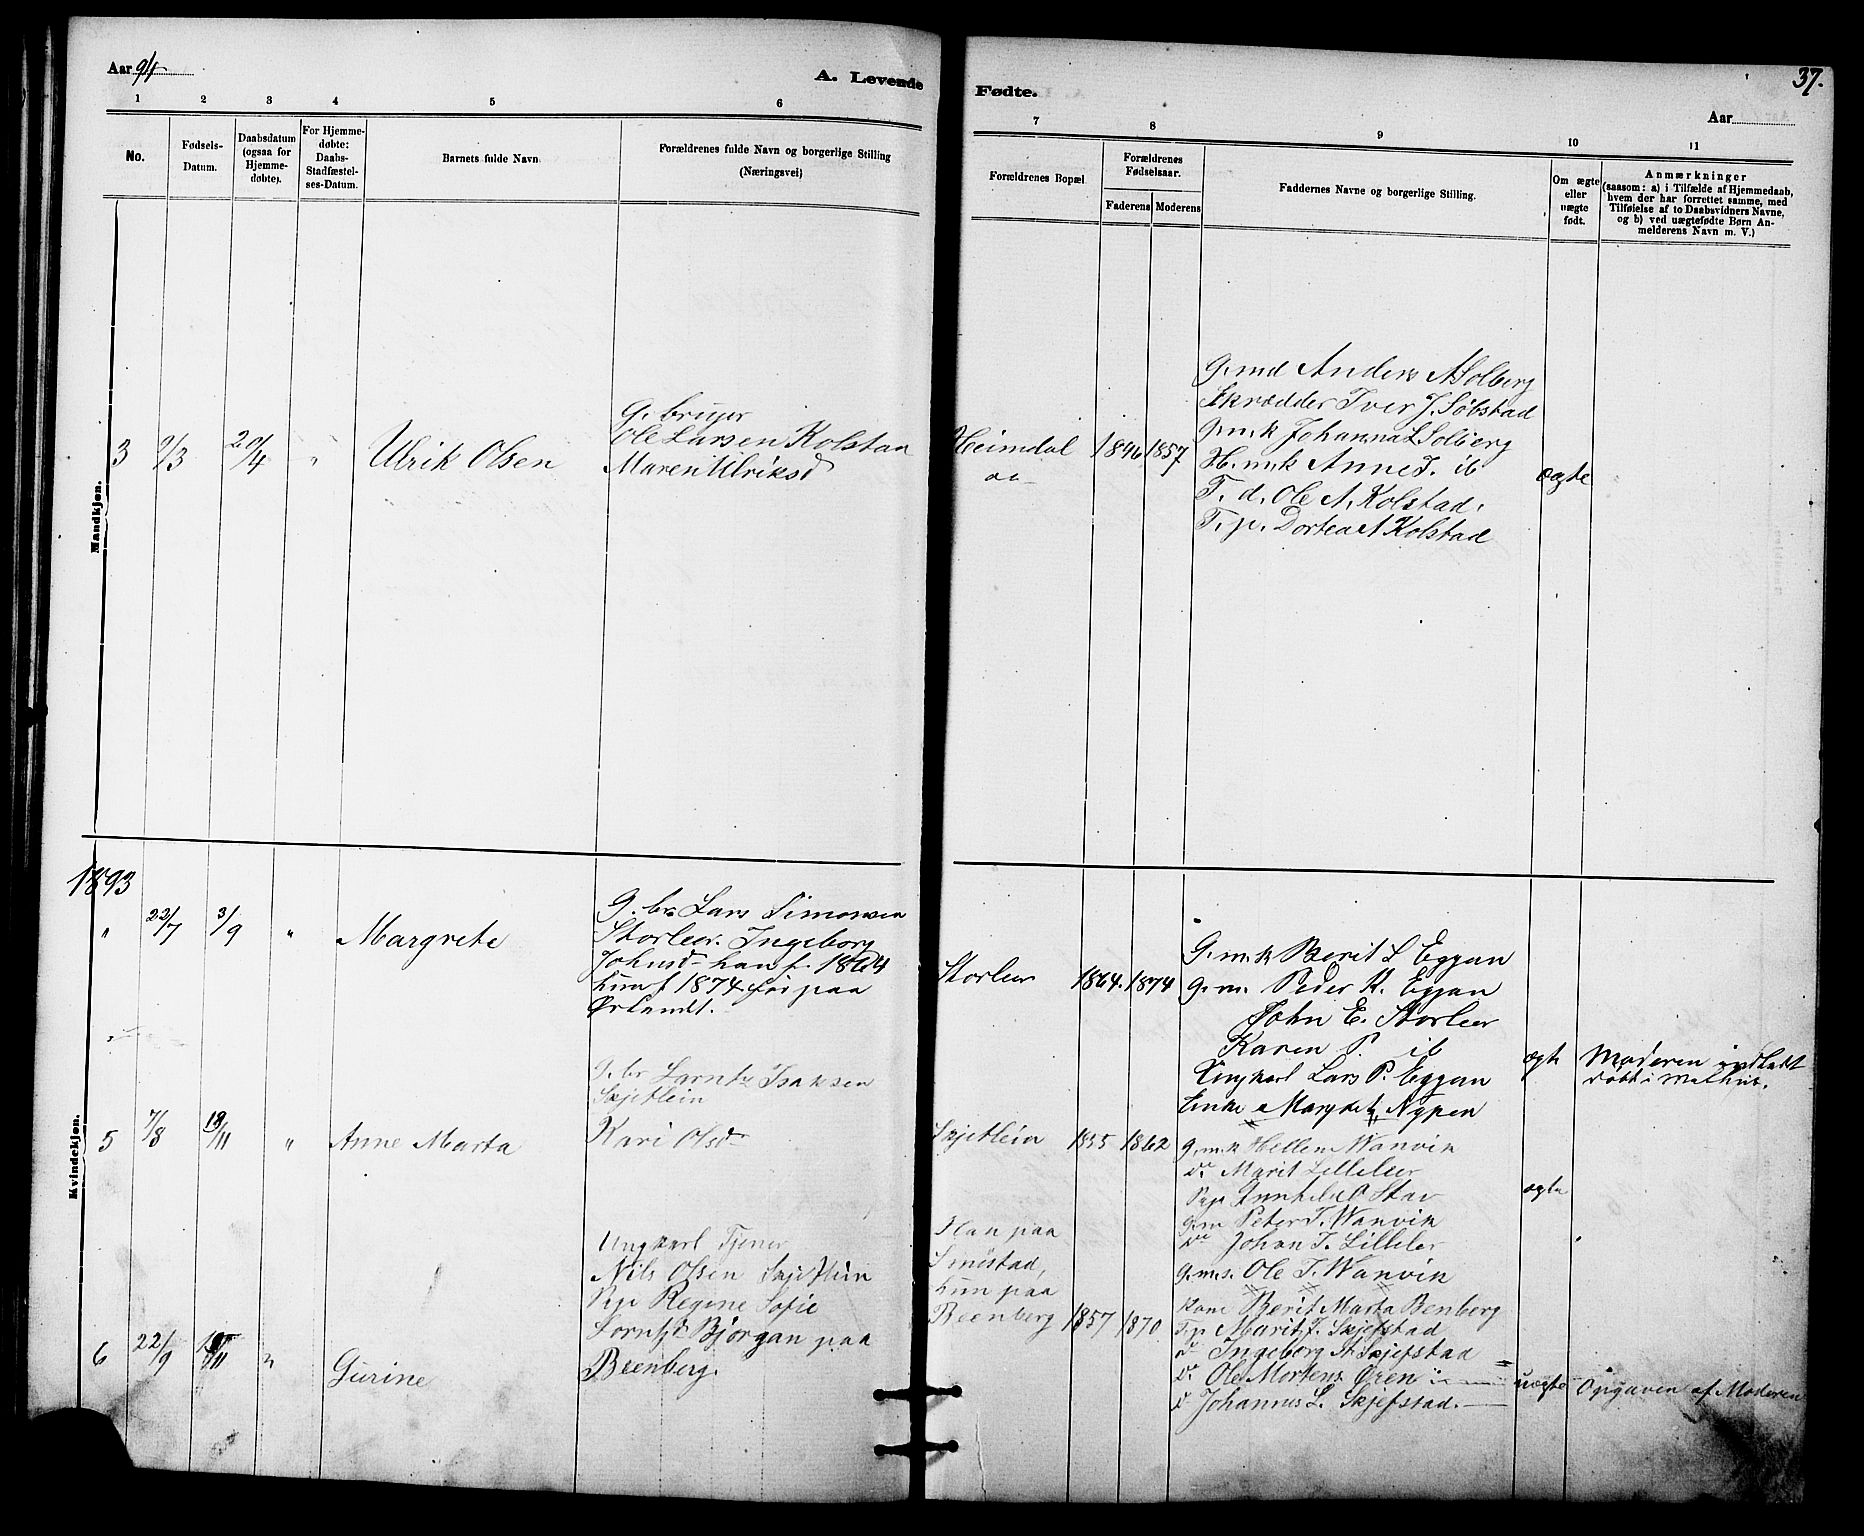 Aar 94
A. Levende
Fødte.
37.
Aar
1 2 3 4 5 6
7 8 9 10 11
No.
Fødsels-
Datum.
Daabsdatum
(ogsaa for
Hjemme-
døbte).
For Hjemme-
døbte:
Daabs-
Stadfæstel-
ses-Datum.
Barnets fulde Navn
Forældrenes fulde Navn og borgerlige Stilling
(Næringsvei)
Forældrenes Bopæl.
Forældrenes
Fødselsaar.
Faderens
Moderens
Faddernes Navne og borgerlige Stilling.
Om ægte
eller
uægte
født.
Anmærkninger
(saasom: a) i Tilfælde af Hjemmedaab,
hvem der har forrettet samme, med
Tilføielse af to Daabsvidners Navne,
og b) ved uægtefødte Børn An-
melderens Navn m. V.)
Mandkjøn.
3 9/3 20/4 " Ulrik Olsen
G. bruger
Ole Larsen Kolstad
Maren Ulriksd
Heimdal
1846 1857
G.md Anders A Solberg
Skrædder Iver J. Søbstad
G.m.k Johanna L Solberg
H.m.k Anne J. ib
T. d. Ole A. Kolstad.
T. p. Dortea A Kolstad
ægte
1893
" 22/7 3/9 " Margrete
G. br Lars Simonsen
Storler. Ingeborg
Johnsd han f. 1864
hun f 1874 paa
Ørlandt.
Storler 1864. 1874
G.m.k Berit L Eggan
G.m. Peder K. Eggan
John E. Storler
Karen P. ib
Ungkarl Lars P. Eggan
Enke Margret Nypen
ægte
Moderen indladt
døbt i Melhus.
Kvindekjøn.
5 7/8 19/11 " Anne Marta
G. br Larntz Isaksen
Skjetlein
Kari Olsd
Skjetlein 1855 1862
G.m.k Hellem Wanvik
do Marit Lilleler
Pige O Stav
G.m Peter T. Wanvik
do Johan T. Lilleler
G.m.s. Ole T. Wanvik
ægte
6 22/9 19/11 " Gurine
Ungkarl Tjener
Nils Olsen Skjetlein
Pige Regine Sofie
Lorntz Bjørgan paa
Beenberg.
Han paa
Smistad,
hun paa
Beenberg 1857 1870
Kone Berit Marta Benberg
T.p Marit J. Skjefstad
d Ingeborg A Skjefstad
do Ole Mortens Øren
d Johannes L. Skjefstad.
uægte
Opgaven af Moderen